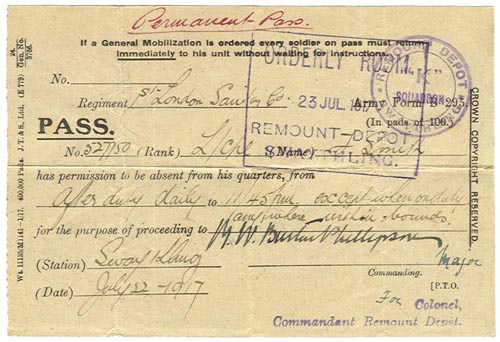 Permanent Pass.
If a General Mobilization is ordered every soldier on pass must return
immediately to his unit without waiting for instructions.
No.
ORDERLY ROOM. "K"
SQUADRON
REMOUNT DEPOT
23 JUL 1917
REMOUNT DEPOT
Regiment 1st London Sanitary Co.
Army Form B 295.
(In pads of 100.)
PASS.
No. 527750 (Rank) L/Cpl (Name) Smith
has permission to be absent from his quarters, from
After duty daily to 11.45 pm, except when on duty
(anywhere within bounds)
for the purpose of proceeding to
(Station) Swaythling
(Date) July 22-1917
Major
Commanding.
[P.T.O.
For Colonel,
Commandant Remount Depôt.
CROWN COPYRIGHT RESERVED.
(E 779)
J. T. & S., Ltd.
400,000 Pads.